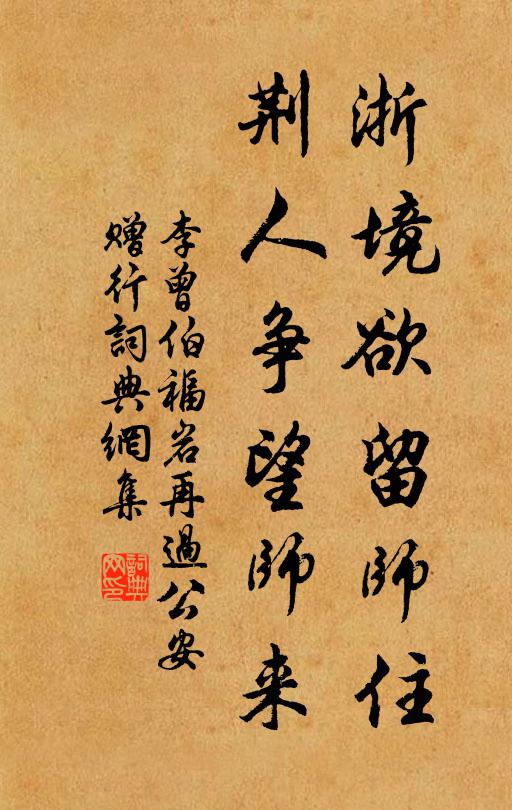 浙境欲留師住
荆人争望師来
李曾伯福岩再過公安
赠行詞典網集
詞典网印